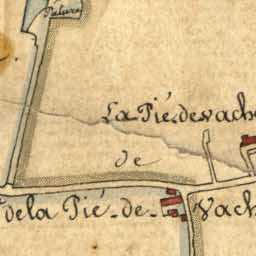 Pature
La Pié de vache
de
de la Pié - de - Vach